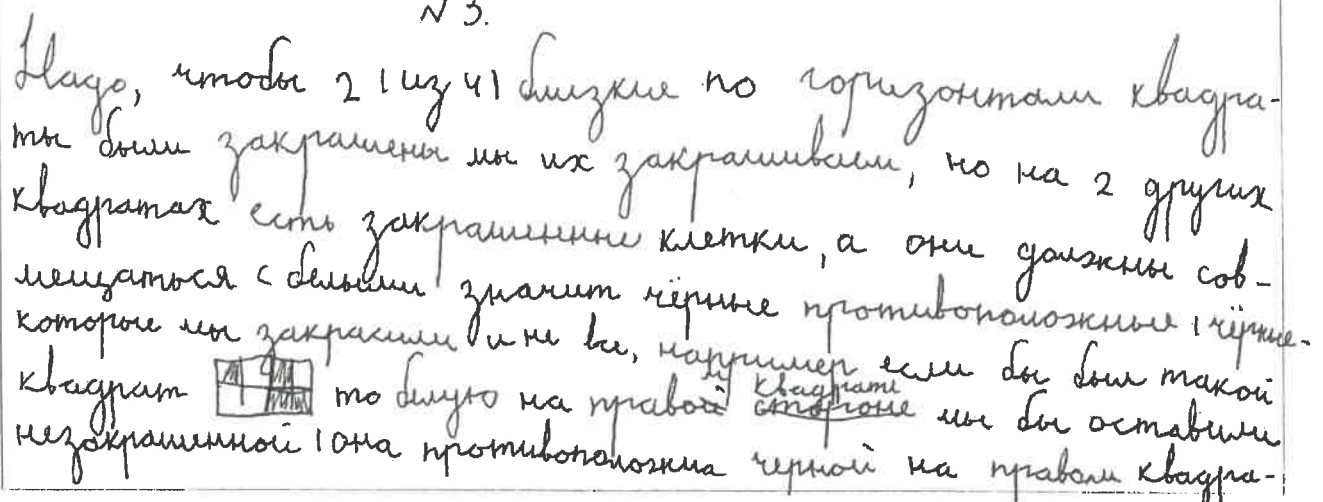 № 3.
Надо, чтобы 2 (из 4) близкие по горизонтали квадра-
ты были закрашены мы их закрашиваем, но на 2 других
квадратах есть закрашенные клетки, а они должны сов-
мещаться с белыми значит чёрные противоположные (чёрные-
которые мы закрасили и не все, например если бы был такой
квадрат то белую на правом квадрате стороне мы бы оставили
незакрашенной (она противоположна черной на правом квадра-